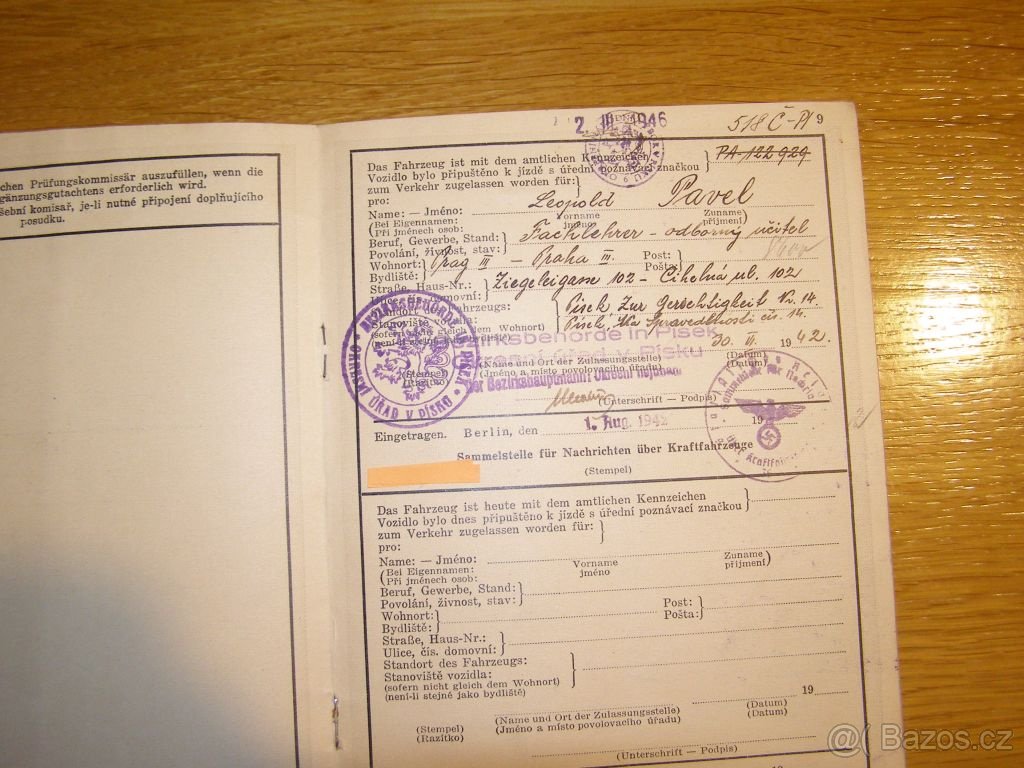 chen Prüfungskommissär auszufüllen, wenn die
gänzungsgutachtens erforderlich wird.
šební komisař, je-li nutné připojení doplňujícího
posudku.
2. III. 1946
518 Č-Pl 9
Das Fahrzeug ist mit dem amtlichen Kennzeichen
Vozidlo bylo připuštěno k jízdě s úřední poznávací značkou
PA-122929
zum Verkehr zugelassen worden für:
pro:
Leopold Pavel
Name: — Jméno: Vorname Zuname
(Bei Eigennamen: jméno příjmení)
(Při jménech osob:
Beruf, Gewerbe, Stand: Fachlehrer - odborný učitel
Povolání, živnost, stav:
Wohnort: Prag III - Praha III. Post:
Bydliště: Pošta:
Straße, Haus-Nr.: Ziegeleigasse 102 - Cihelná ul. 102
Ulice, čís. domovní:
Standort des Fahrzeugs: Pisek Zur Gerechtigkeit Nr. 14
Stanoviště vozidla:
(sofern nicht gleich dem Wohnort) Písek, Na Spravedlnosti čís. 14.
(není-li stejné jako bydliště)
BEZIRKSBEHÖRDE IN PISEK
OKRESNÍ ÚŘAD V PÍSKU
Bezirksbehörde in Pisek
Okresní úřad v Písku
30. III. 1942
(Stempel) (Name und Ort der Zulassungsstelle) (Datum)
(Razítko) (Jméno a místo povolovacího úřadu) (Datum)
Der Bezirkshauptmann: Okresní hejtman:
(Unterschrift - Podpis)
Eingetragen. Berlin, den 1. Aug. 1942 19
Sammelstelle für Nachrichten über Kraftfahrzeuge
(Stempel)
Das Fahrzeug ist heute mit dem amtlichen Kennzeichen
Vozidlo bylo dnes připuštěno k jízdě s úřední poznávací značkou
zum Verkehr zugelassen worden für:
pro:
Name: — Jméno:
(Bei Eigennamen: Vorname Zuname
(Při jménech osob: jméno příjmení)
Beruf, Gewerbe, Stand:
Povolání, živnost, stav:
Wohnort: Post:
Bydliště: Pošta:
Straße, Haus-Nr.:
Ulice, čís. domovní:
Standort des Fahrzeugs:
Stanoviště vozidla:
(sofern nicht gleich dem Wohnort)
(není-li stejné jako bydliště)
19
(Name und Ort der Zulassungsstelle) (Datum)
(Stempel) (Jméno a místo povolovacího úřadu) (Datum)
(Razítko)
(Unterschrift - Podpis)
@ Bazos.cz